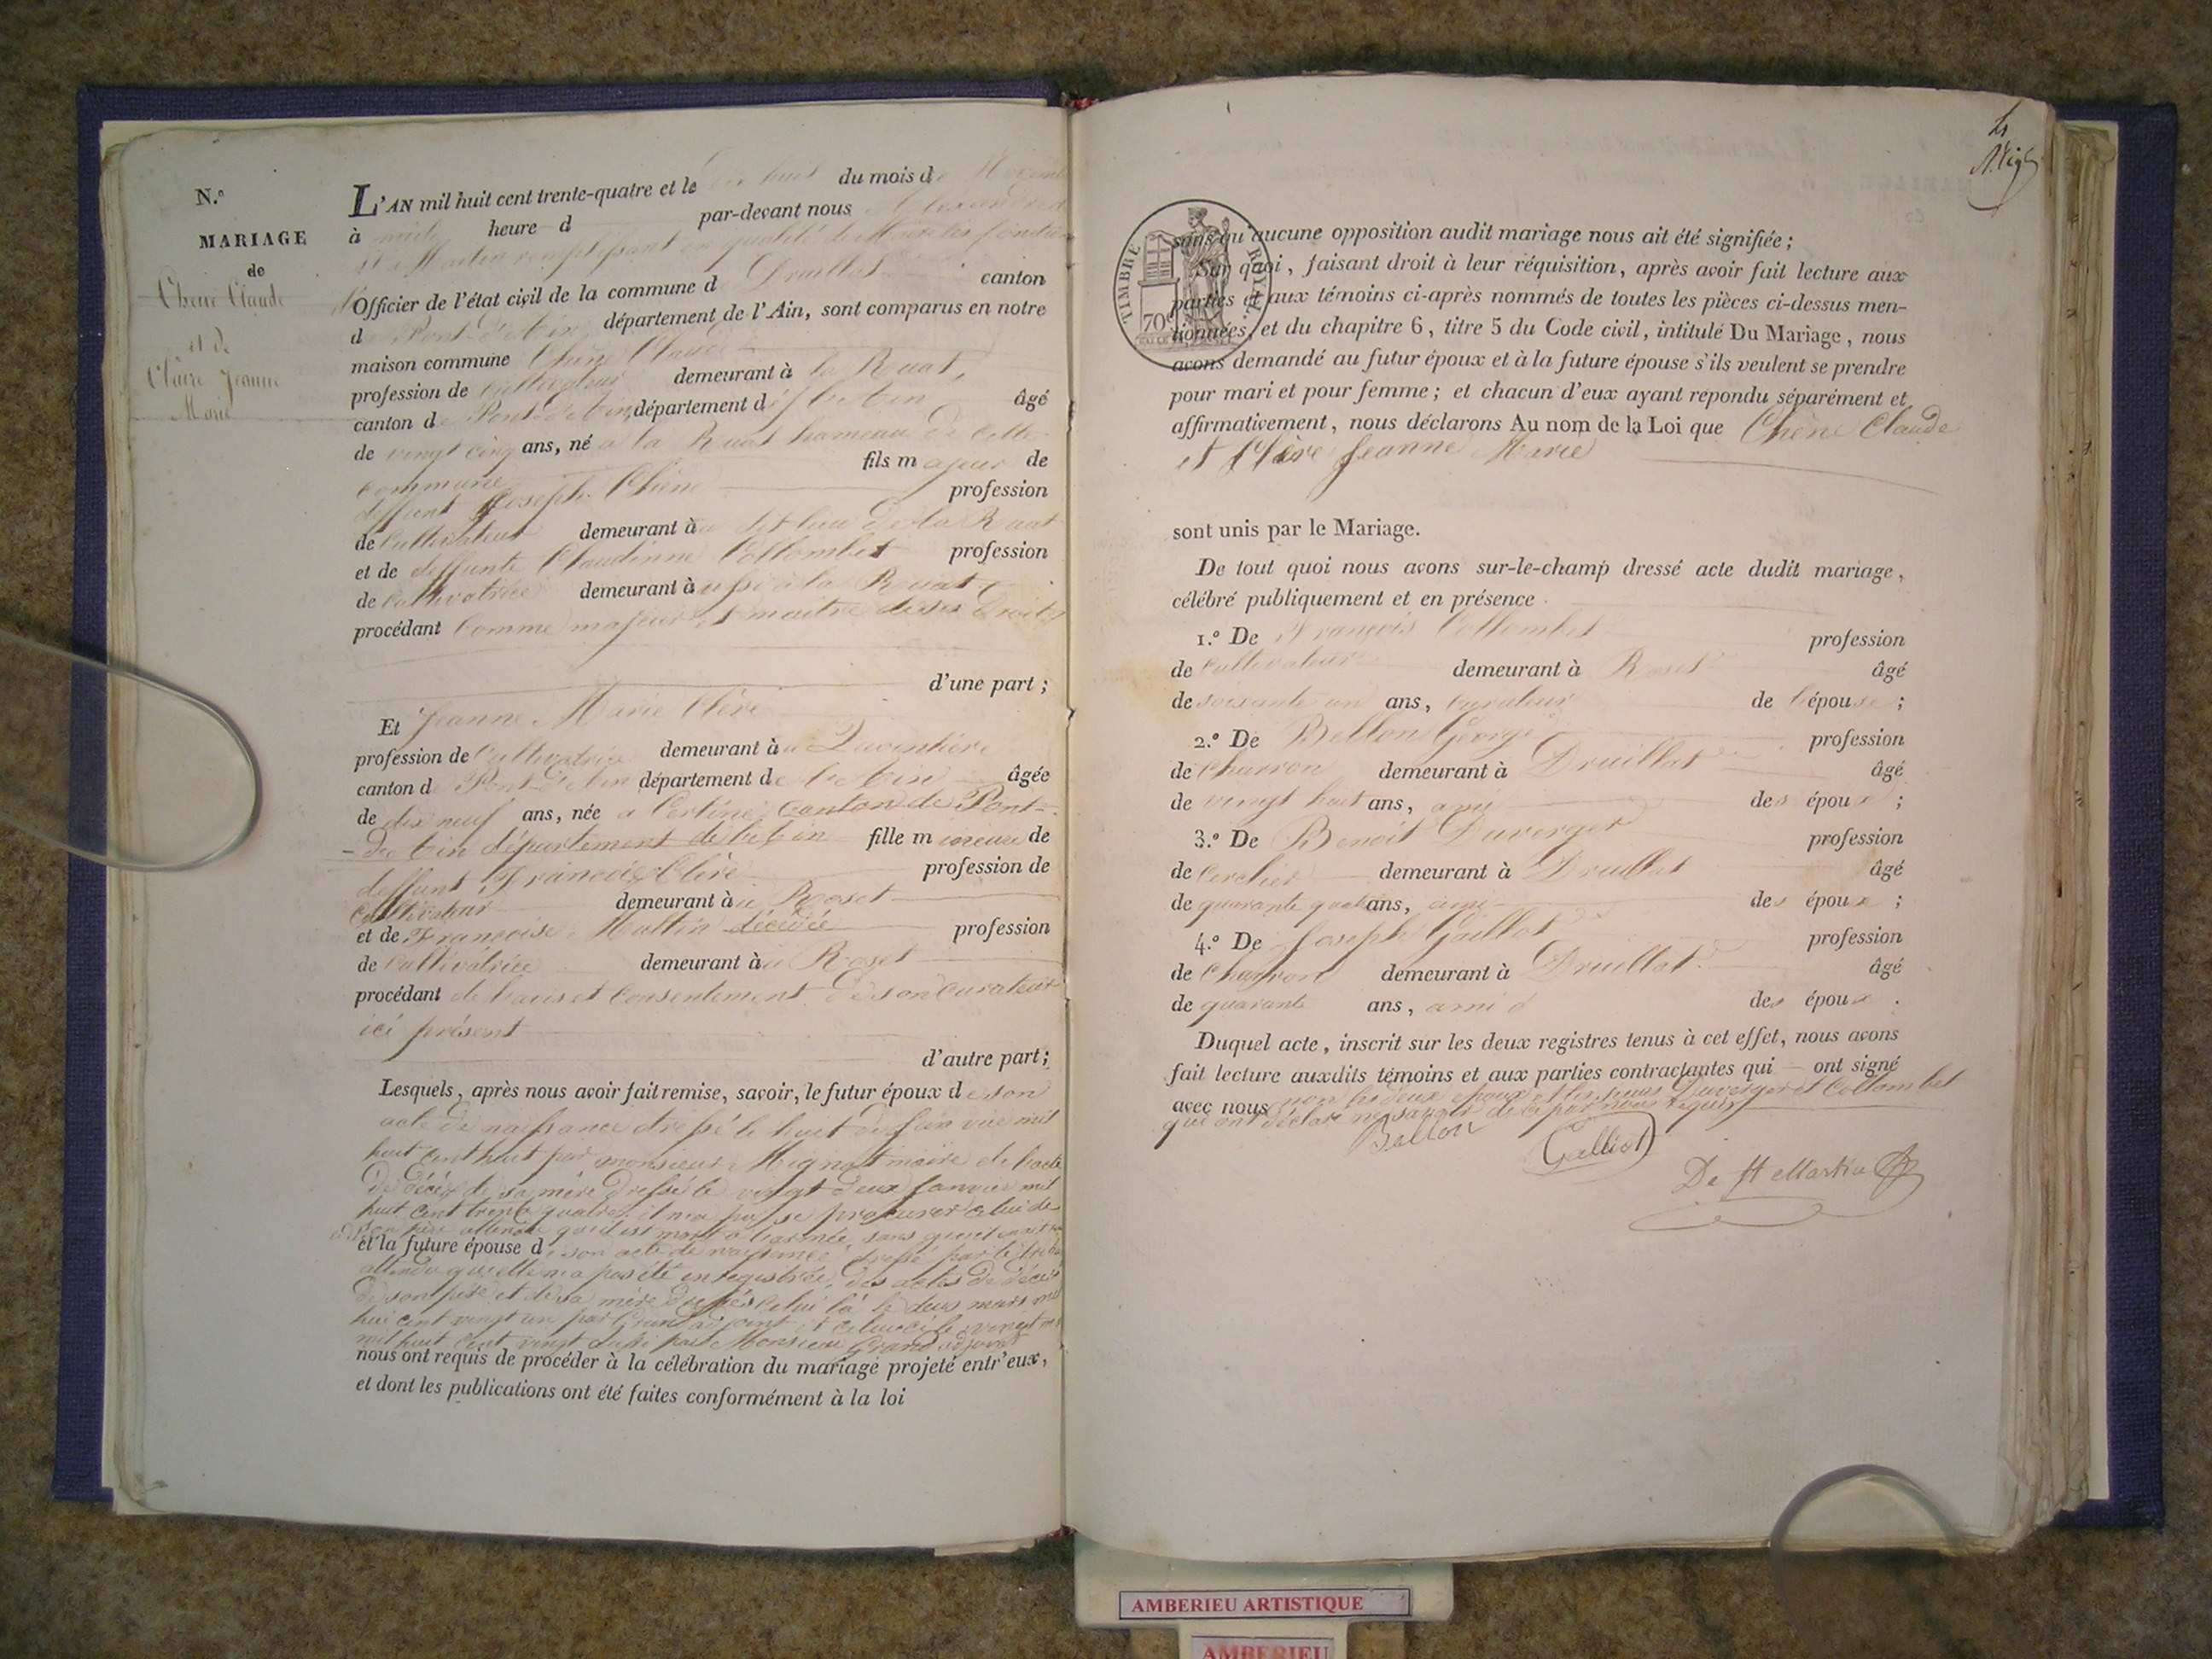 N.º
MARIAGE
de
Chene Claude
et de
Claire Jeanne
Marie
L'AN mil huit cent trente-quatre et le dix huit du mois de
à midi heure d par-devant nous
St Martin remplissant en qualité de Maire les fonctions
d'Officier de l'état civil de la commune d Druillat canton
d Pont d'Ain département de l'Ain, sont comparus en notre
maison commune Chêne Claude
profession de Cultivateur demeurant à la Ruat,
canton de Pont d'Ain, département de l'Ain âgé
de vingt cinq ans, né à la Ruat hameau de cette
commune fils majeur de
deffunt Joseph Chêne profession
de Cultivateur demeurant à dit lieu de la Ruat
et de deffunte Claudinne Collombet profession
de Cultivatrice demeurant aussi à la Ruat
procédant comme majeur et maitre de ses droits
d'une part ;
Et Jeanne Marie Clère
profession de Cultivatrice demeurant à
canton de Pont d'Ain département de l'Ain âgée
de dix neuf ans, née a Certines Canton de Pont-
-de Ain département de l'Ain fille mineure de
deffunt François Clère profession de
Cultivateur demeurant à Roset
et de Françoise Mollin décédée profession
de Cultivatrice demeurant à Roset
procédant de l'avis et consentement de son curateur
ici présent
d'autre part ;
Lesquels, après nous avoir fait remise, savoir, le futur époux de son
acte de naissance dressé le huit mil
huit cent huit par monsieur Mignot maire de l'acte
de décès de sa mère dressé le vingt deux janvier mil
huit cent trente quatre, il n'a pu se procurer celui de
son père attendu qu'il est mort à l'armée, sans
et la future épouse de son acte de naissance dressé par le
attendu qu'elle n'a pas été enregistrée, des actes de décès
de son père et de sa mère dressés celui là le deux mars mil
huit cent vingt un par Grand adjoint et celui ci le vingt
mil huit cent vingt par Monsieur Grand adjoint
nous ont requis de procéder à la célébration du mariage projeté entr'eux,
et dont les publications ont été faites conformément à la loi
TIMBRE ROYAL
70c
sans qu'aucune opposition audit mariage nous ait été signifiée ;
Sur quoi, faisant droit à leur réquisition, après avoir fait lecture aux
parties et aux témoins ci-après nommés de toutes les pièces ci-dessus men-
tionnées, et du chapitre 6, titre 5 du Code civil, intitulé Du Mariage, nous
avons demandé au futur époux et à la future épouse s'ils veulent se prendre
pour mari et pour femme ; et chacun d'eux ayant répondu séparément et
affirmativement, nous déclarons Au nom de la Loi que Chêne Claude
et Clère Jeanne Marie
sont unis par le Mariage.
De tout quoi nous avons sur-le-champ dressé acte dudit mariage,
célébré publiquement et en présence
1.º De François Collombet profession
de Cultivateur demeurant à Roset âgé
de soixante un ans, curateur de l'épouse ;
2.º De Bellon George profession
de Charron demeurant à Druillat âgé
de vingt huit ans, ami des époux ;
3.º De Benoit Duverger profession
de Cerclier demeurant à Druillat âgé
de quarante quatre ans, ami des époux ;
4.º De Joseph Gaillot profession
de Charron demeurant à Druillat âgé
de quarante ans, ami des époux .
Duquel acte, inscrit sur les deux registres tenus à cet effet, nous avons
fait lecture auxdits témoins et aux parties contractantes qui ont signé
avec nous non les deux époux et témoins Duverger et Collombet
qui ont déclaré ne savoir de ce par nous requis
Bellon
Galliot
De St Martin
AMBERIEU ARTISTIQUE
AMBERIEU